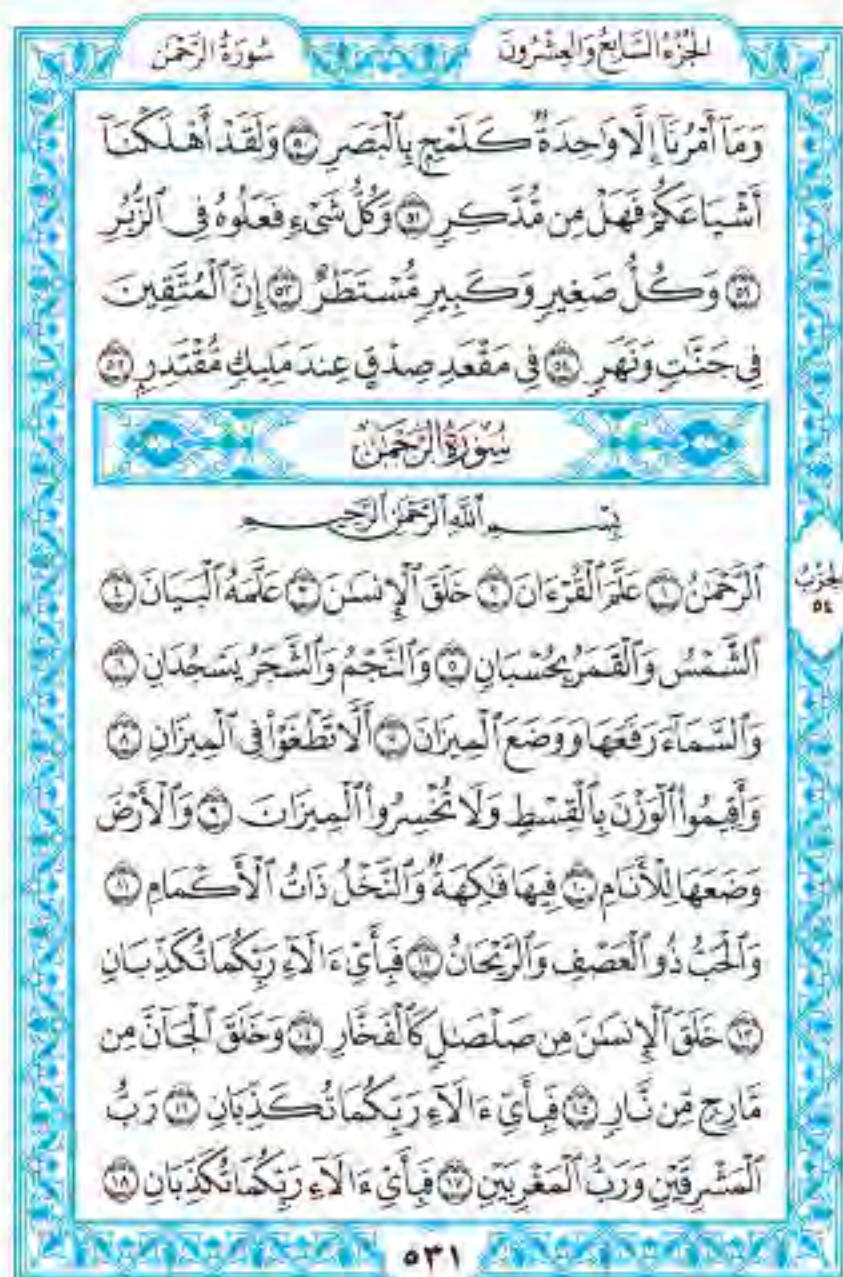 الجُزْءُ السَّابِعُ وَالعِشْرُونَ سُورَةُ الرَّحْمٰن
وَمَآ أَمْرُنَآ إِلَّا وَٰحِدَةٌ كَلَمْحٍۭ بِٱلْبَصَرِ ٥٠ وَلَقَدْ أَهْلَكْنَآ
أَشْيَاعَكُمْ فَهَلْ مِن مُّدَّكِرٍ ٥١ وَكُلُّ شَىْءٍ فَعَلُوهُ فِى ٱلزُّبُرِ
٥٢ وَكُلُّ صَغِيرٍ وَكَبِيرٍ مُّسْتَطَرٌ ٥٣ إِنَّ ٱلْمُتَّقِينَ
فِى جَنَّٰتٍ وَنَهَرٍ ٥٤ فِى مَقْعَدِ صِدْقٍ عِندَ مَلِيكٍ مُّقْتَدِرٍۭ ٥٥
سُورَةُ الرَّحْمٰن
بِسْمِ ٱللَّهِ ٱلرَّحْمَٰنِ ٱلرَّحِيمِ
ٱلرَّحْمَٰنُ ١ عَلَّمَ ٱلْقُرْءَانَ ٢ خَلَقَ ٱلْإِنسَٰنَ ٣ عَلَّمَهُ ٱلْبَيَانَ ٤
ٱلشَّمْسُ وَٱلْقَمَرُ بِحُسْبَانٍ ٥ وَٱلنَّجْمُ وَٱلشَّجَرُ يَسْجُدَانِ ٦
وَٱلسَّمَآءَ رَفَعَهَا وَوَضَعَ ٱلْمِيزَانَ ٧ أَلَّا تَطْغَوْا۟ فِى ٱلْمِيزَانِ ٨
وَأَقِيمُوا۟ ٱلْوَزْنَ بِٱلْقِسْطِ وَلَا تُخْسِرُوا۟ ٱلْمِيزَانَ ٩ وَٱلْأَرْضَ
وَضَعَهَا لِلْأَنَامِ ١٠ فِيهَا فَٰكِهَةٌ وَٱلنَّخْلُ ذَاتُ ٱلْأَكْمَامِ ١١
وَٱلْحَبُّ ذُو ٱلْعَصْفِ وَٱلرَّيْحَانُ ١٢ فَبِأَىِّ ءَالَآءِ رَبِّكُمَا تُكَذِّبَانِ
١٣ خَلَقَ ٱلْإِنسَٰنَ مِن صَلْصَٰلٍ كَٱلْفَخَّارِ ١٤ وَخَلَقَ ٱلْجَآنَّ مِن
مَّارِجٍ مِّن نَّارٍ ١٥ فَبِأَىِّ ءَالَآءِ رَبِّكُمَا تُكَذِّبَانِ ١٦ رَبُّ
ٱلْمَشْرِقَيْنِ وَرَبُّ ٱلْمَغْرِبَيْنِ ١٧ فَبِأَىِّ ءَالَآءِ رَبِّكُمَا تُكَذِّبَانِ ١٨
الحِزْبُ
٥٤
٥٣١